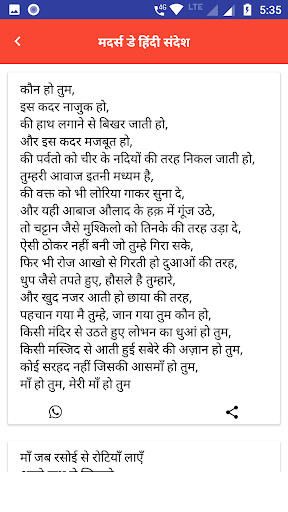 4G LTE 5:35
मदर्स डे हिंदी संदेश
कौन हो तुम,
इस कदर नाजुक हो,
की हाथ लगाने से बिखर जाती हो,
और इस कदर मजबूत हो,
की पर्वतो को चीर के नदियों की तरह निकल जाती हो,
तुम्हरी आवाज इतनी मध्यम है,
की वक्त को भी लोरिया गाकर सुना दे,
और यही आबाज औलाद के हक़ में गूंज उठे,
तो चट्टान जैसे मुश्किलो को तिनके की तरह उड़ा दे,
ऐसी ठोकर नहीं बनी जो तुम्हे गिरा सके,
फिर भी रोज आखो से गिरती हो दुआओं की तरह,
धुप जैसे तपते हुए, हौसले है तुम्हारे,
और खुद नजर आती हो छाया की तरह,
पहचान गया मै तुम्हे, जान गया तुम कौन हो,
किसी मंदिर से उठते हुए लोभन का धुआं हो तुम,
किसी मस्जिद से आती हुई सबेरे की अज़ान हो तुम,
कोई सरहद नहीं जिसकी आसमाँ हो तुम,
माँ हो तुम, मेरी माँ हो तुम
माँ जब रसोई से रोटियाँ लाएँ